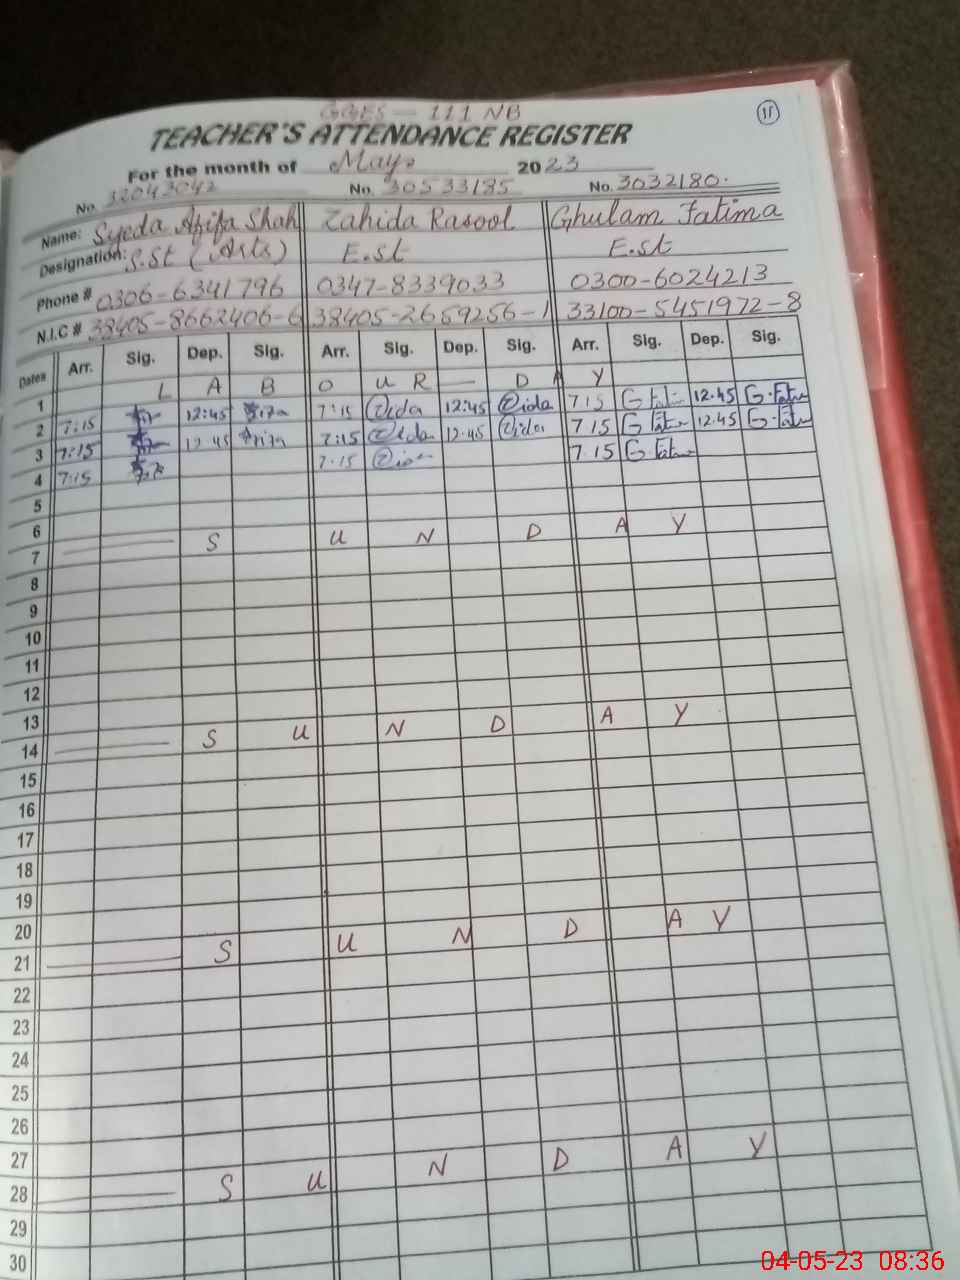 GGES — 111 NB
11
TEACHER'S ATTENDANCE REGISTER
For the month of May, 2023
No. 32043042 No. 30533185 No. 3032180.
Name: Syeda Shah Zahida Rasool Ghulam Fatima
Designation: S.St (Arts) E.st E.st
Phone # 0306-6341796 0347-8339033 0300-6024213
N.I.C # 38405-8662406-6 38405-2659256-1 33100-5451972-8
Dates Arr. Sig. Dep. Sig. Arr. Sig. Dep. Sig. Arr. Sig. Dep. Sig.
1 L A B O U R — D A Y
2 7:15 12:45 7:15 Zida 12:45 Zida 7 15 G Fatima 12.45 G.Fatima
3 7:15 12.45 7:15 Zida 12.45 Zida 7 15 G Fatima 12.45 G.Fatima
4 7:15 7.15 7.15 G.Fatima
5
6
7 S U N D A Y
8
9
10
11
12
13
14 S U N D A Y
15
16
17
18
19
20
21 S U N D A Y
22
23
24
25
26
27
28 S U N D A Y
29
30
04-05-23 08:36